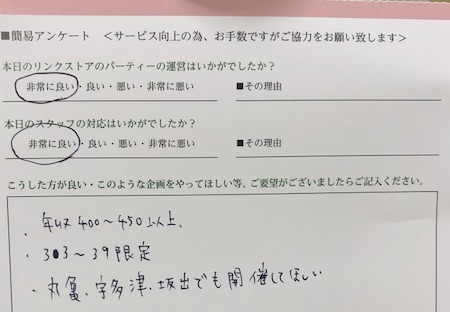 ■簡易アンケート ＜サービス向上の為、お手数ですがご協力をお願い致します＞
本日のリンクストアのパーティーの運営はいかがでしたか？
非常に良い・良い・悪い・非常に悪い ■その理由
本日のスタッフの対応はいかがでしたか？
非常に良い・良い・悪い・非常に悪い ■その理由
こうした方が良い・このような企画をやってほしい等、ご要望がございましたらご記入ください。
・年収400〜450以上、
・33〜39限定
・丸亀、宇多津、坂出でも開催してほしい